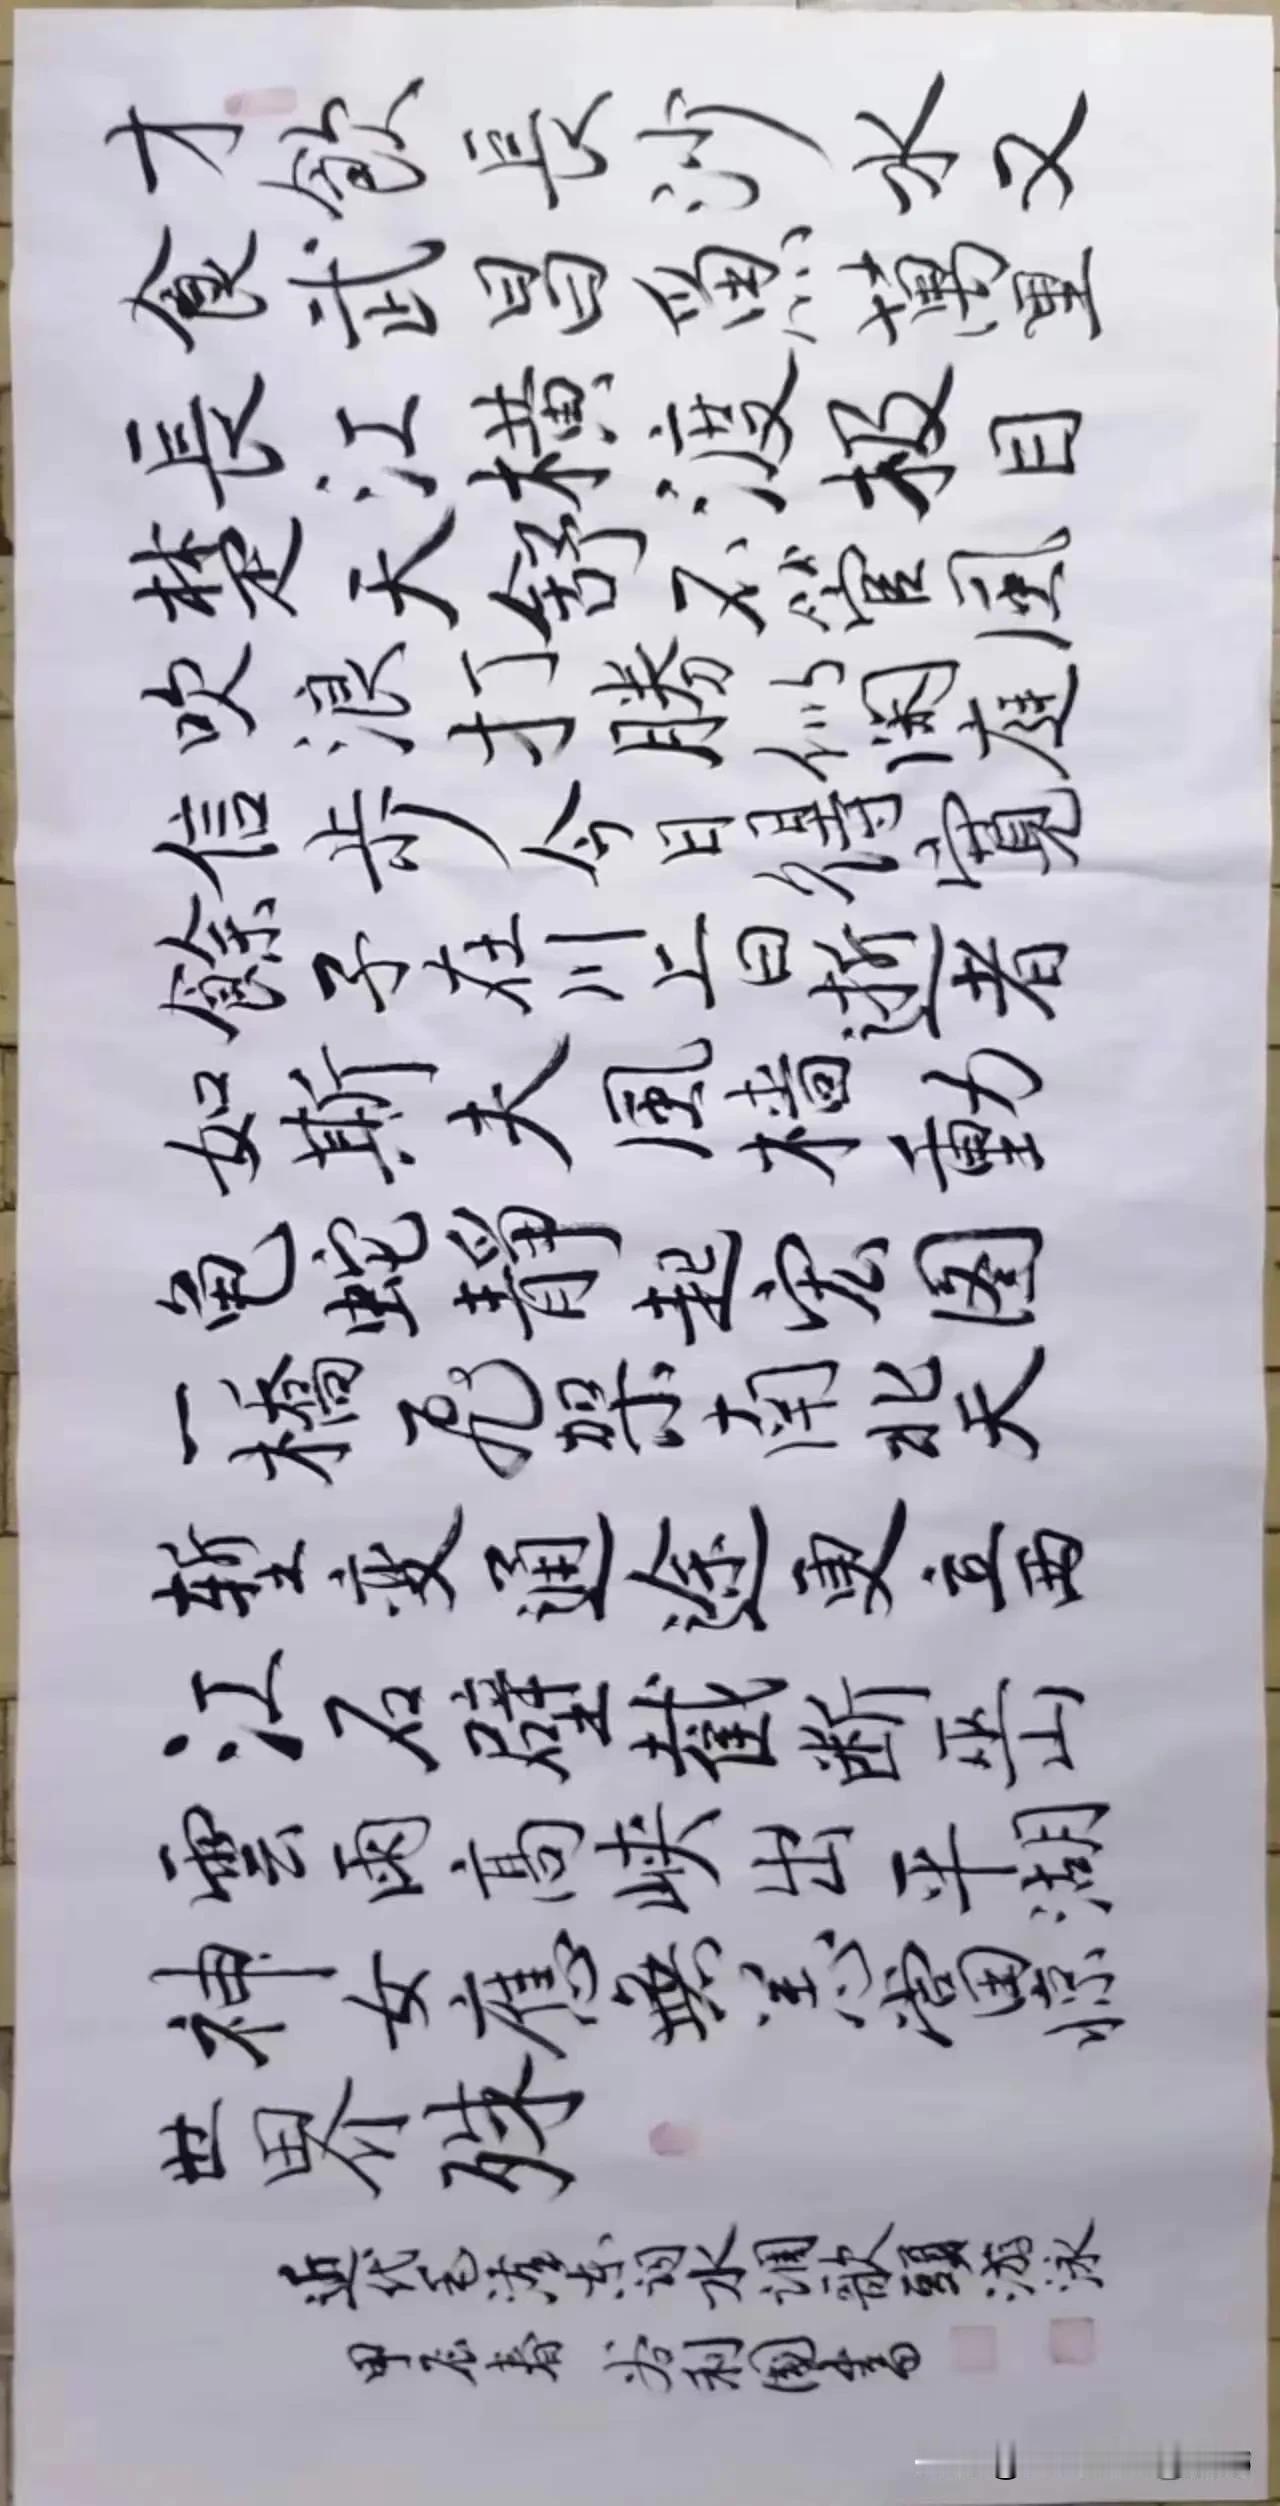 才飲長沙水又
食武昌魚萬里
長江橫渡極目
楚天舒不管風
吹浪打勝似閒庭
信步今日得寬
餘子在川上曰逝者
如斯夫風檣動
龜蛇靜起宏圖
一橋飛架南北天
塹變通途更立西
江石壁截斷巫山
雲雨高峽出平湖
神女應無恙當驚
世界殊
近代毛澤東詞水調歌頭游泳
甲辰春 利國書